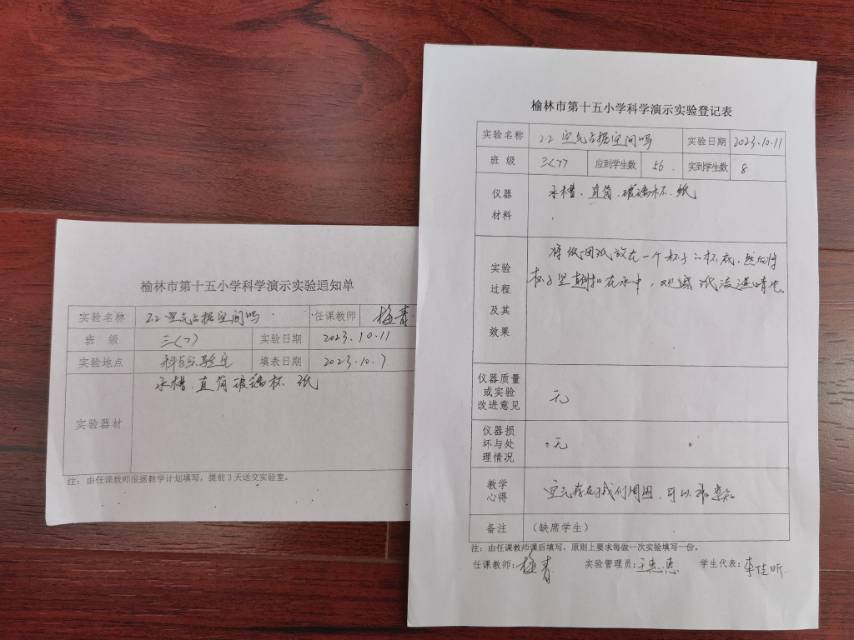 榆林市第十五小学科学演示实验通知单
实验名称 2.2 空气占据空间吗 任课教师
班 级 三(7) 实验日期 2023.10.11
实验地点 科学实验室 填表日期 2023.10.7
实验器材 水槽、直筒玻璃杯、纸
注:由任课教师根据教学计划填写,提前3天送交实验室。
榆林市第十五小学科学演示实验登记表
实验名称 2.2 空气占据空间吗 实验日期 2023.10.11
班 级 三(7) 应到学生数 56 实到学生数 8
仪器材料 水槽、直筒、玻璃杯、纸
实验过程及其效果
将纸团 放在一个杯子 杯底,然后将
杯子竖直倒扣在水中,观察
仪器质量或实验改进意见 无
仪器损坏与处理情况 无
教学心得 空气存在于我们周围,可以被感知
备注 (缺席学生)
注:由任课教师课后填写,原则上要求每做一次实验填写一份。
任课教师: 实验管理员:王惠惠 学生代表:李佳昕